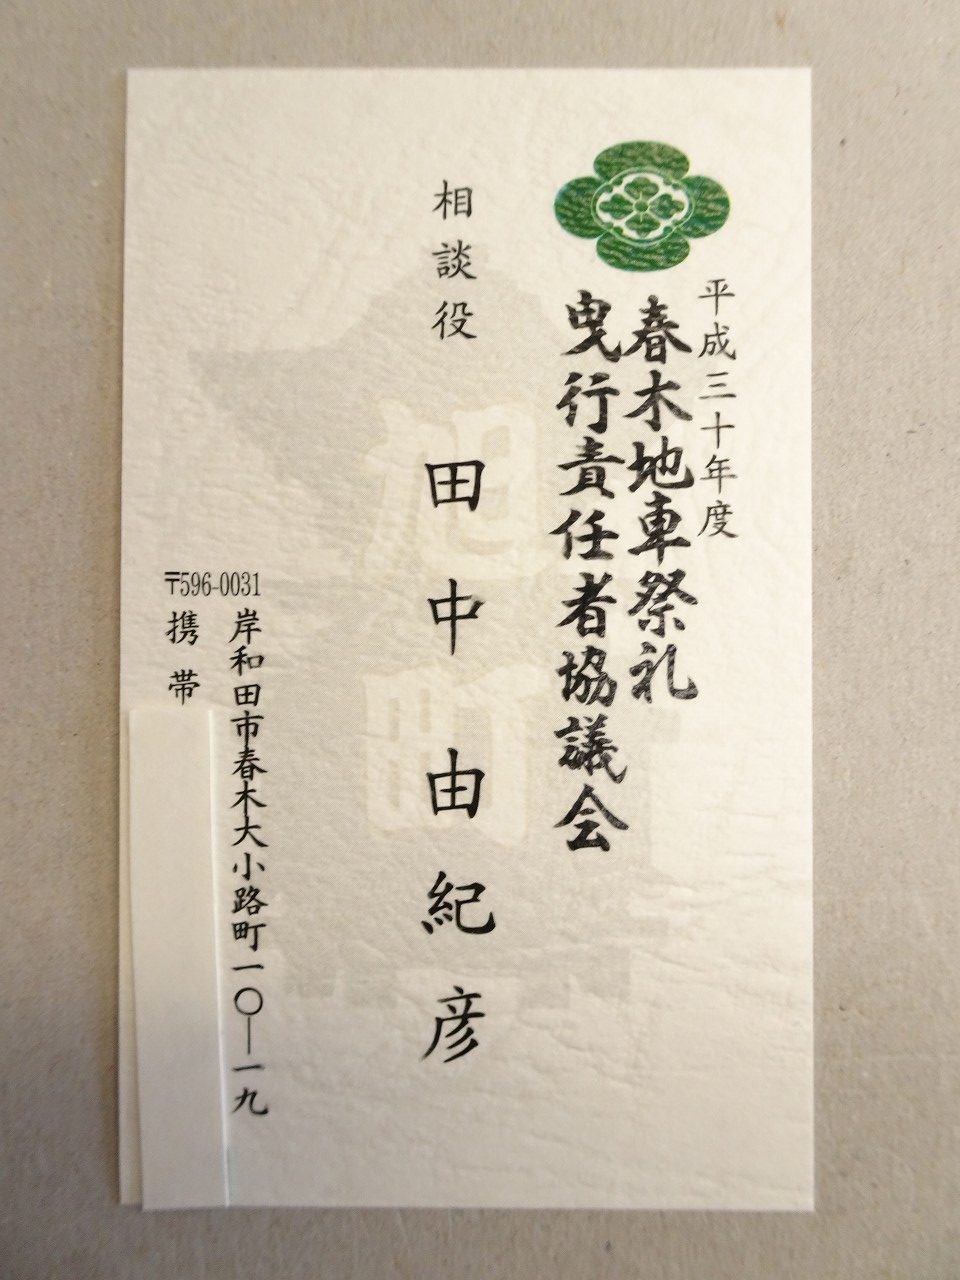 平成三十年度
春木地車祭礼
曳行責任者協議会
相談役
田中由紀彦
岸和田市春木大小路町一〇―一九
〒596-0031
携帯
旭町